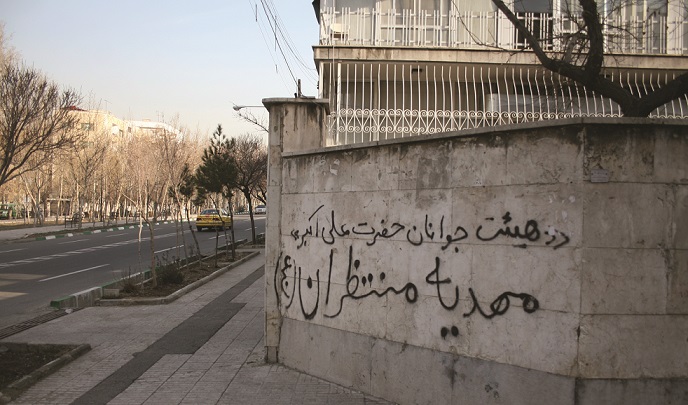 در هیئت جوانان حضرت علی اکبری
مهدیه منتظران (عج)